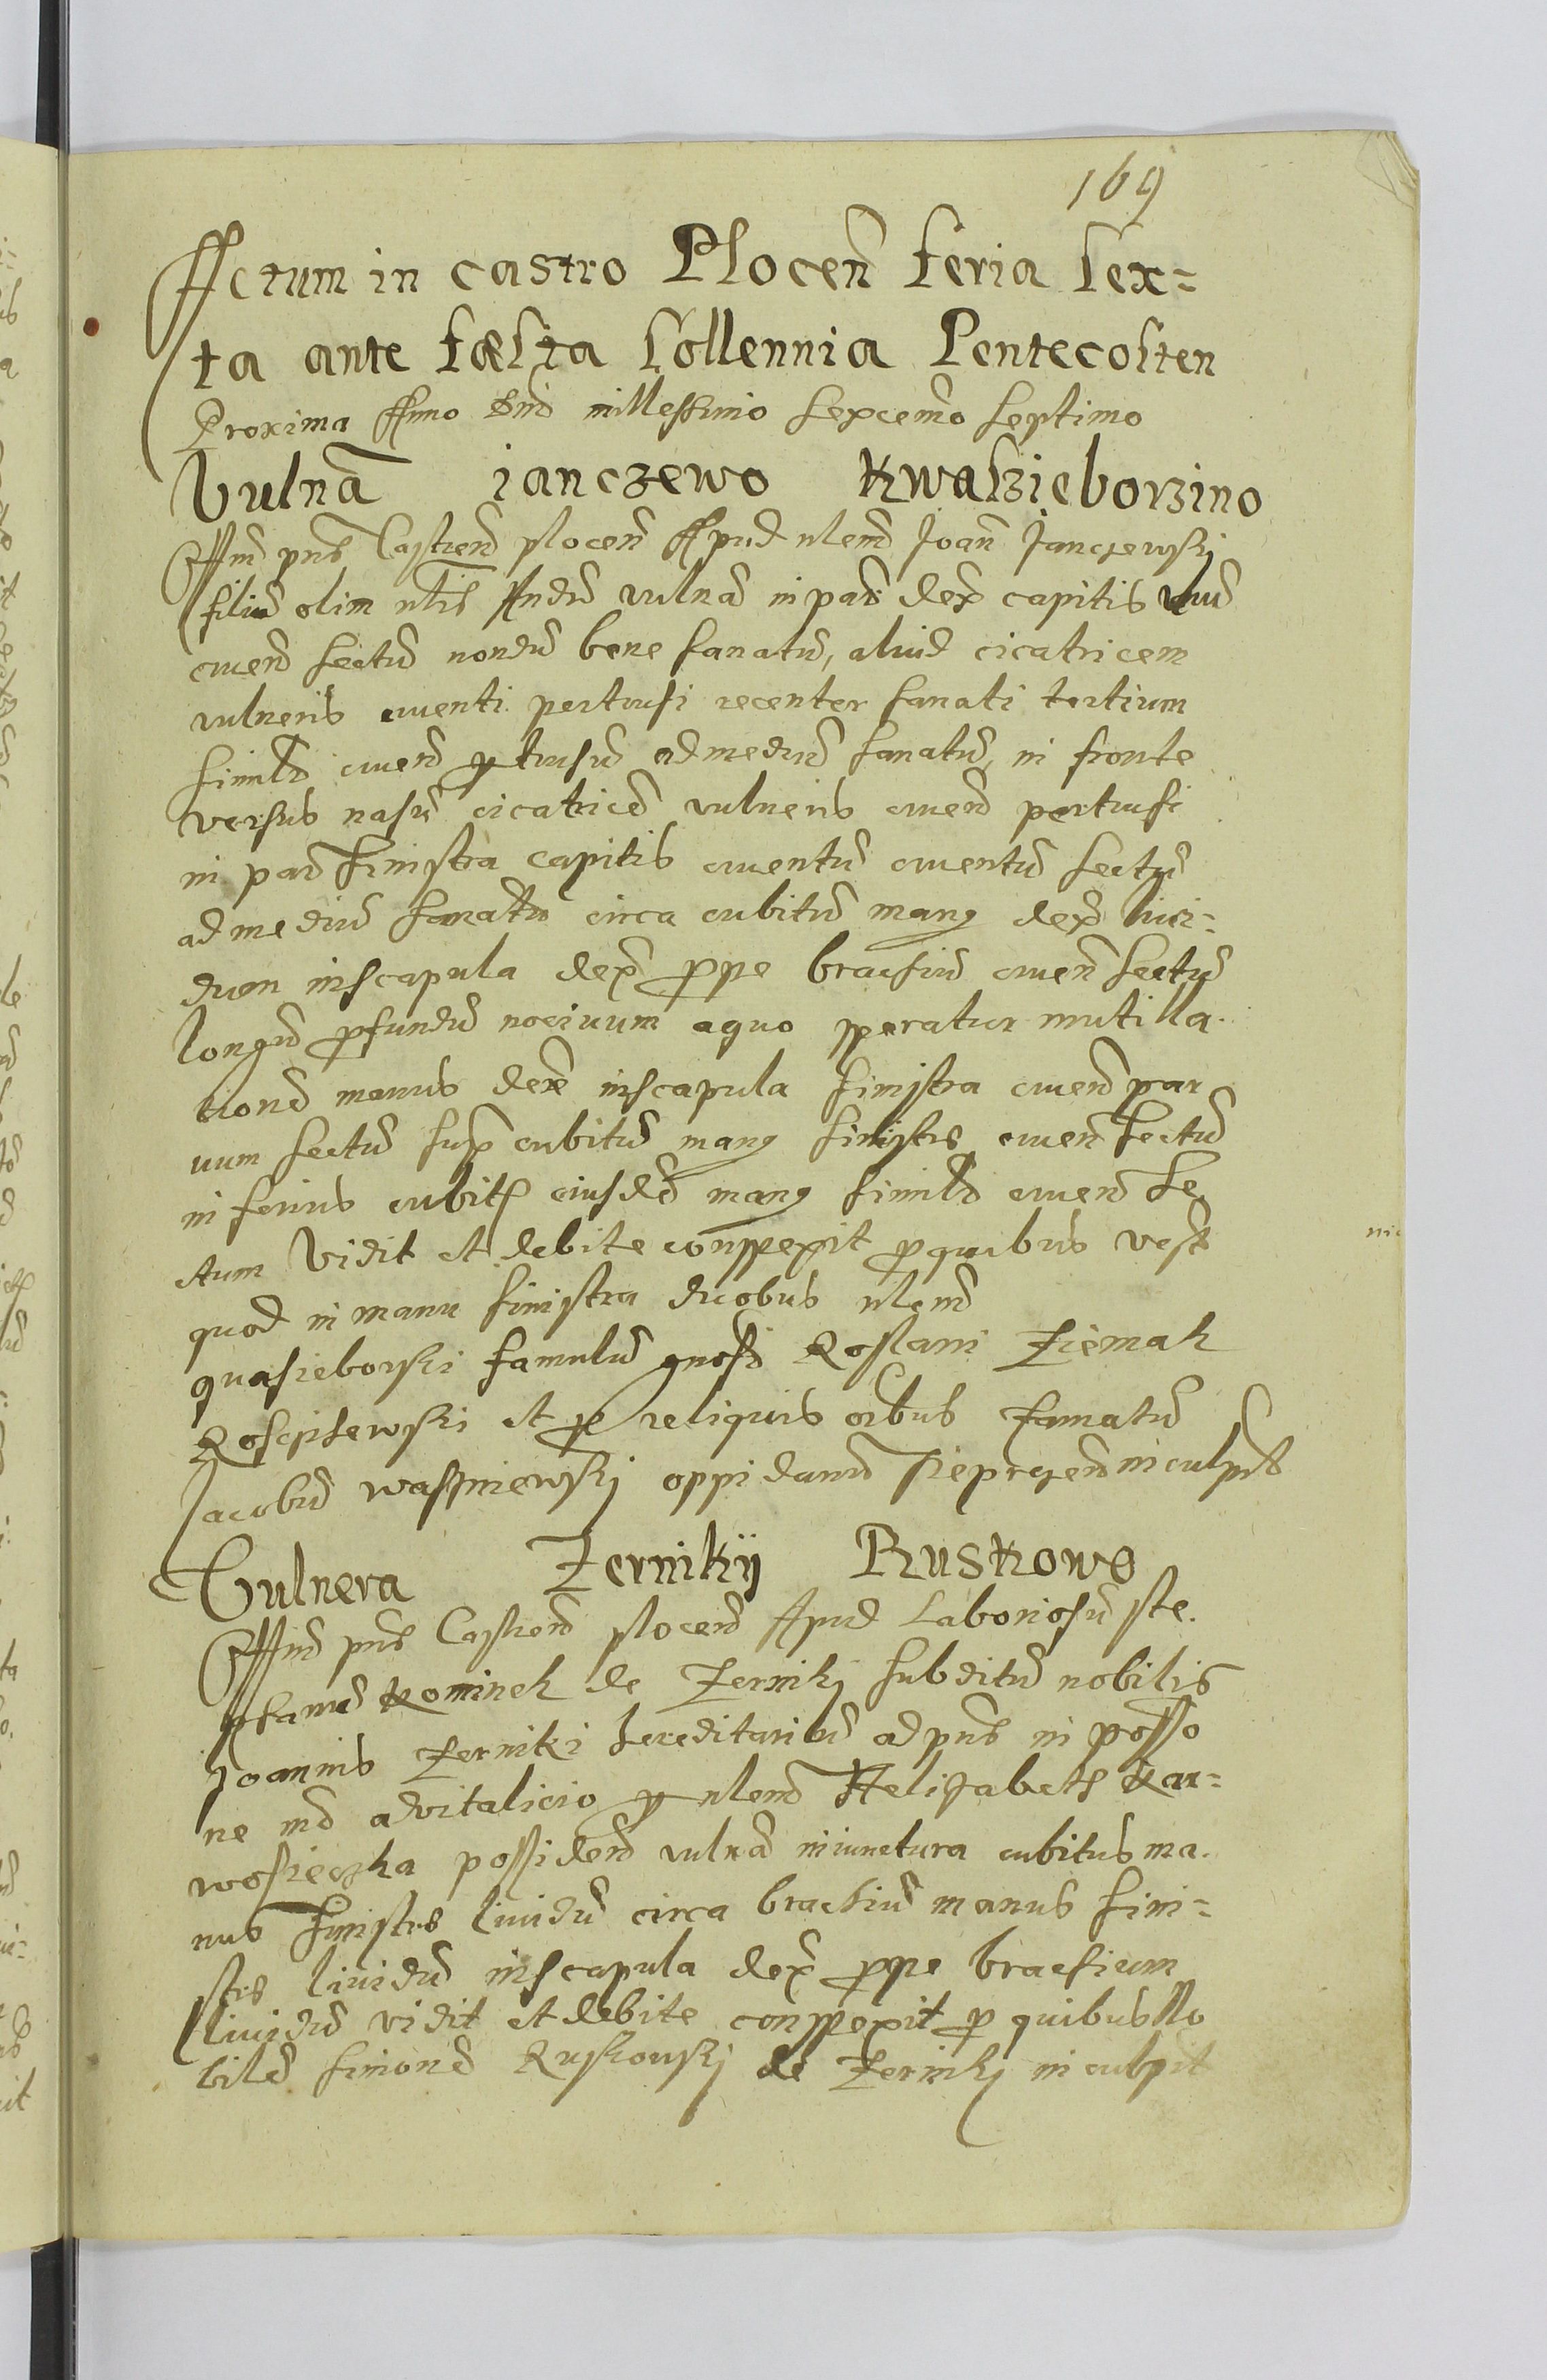 169
Actum in castro Plocen̄ feria sex=
ta ante fæsta sollennia Pentecosten
Proxima Anno Dnī millessimo sexcemo septimo
Vulnã janczewo Kwassieborzino
Offm̄ pn̄s Castren̄ plocen̄ Apud nlem̄ Joan̄ Janczewskj
filiū olim nlis Andr̄ vulnã in par̄ dex̄ capitis unū
cruen̄ sectū nondū bene sanatū, aliud cicatricem
vulneris cruenti pertusi recenter sanati tertium
similr̄ cruen̄ ptusū ad mediū sanatū, in fronte
versus nasū cicatricē vulneris cruen̄ pertusi
in par̄ sinistra capitis cruentū cruentū sectū
ad mediū sanatū circa cubitū man9 dex̄ livi=
dum in scapula dex̄ ꝓpe brachiū cruen̄ sectū
longū ꝓfundū nocivum a quo speratur mutilla.
tionē manus dex̄ in scapula sinistra cruen̄ par
vum sectū sup̄ cubitū man9 sinistrę cruen̄ sectū
inferius cubitū eiusdē man9 similr̄ cruen̄ se
ctum Vidit et debite conspexit ꝓ quibus vest̄
quod in manu sinistra duobus nlem̄
quasieborski famulū gnosi Rostani Ziemak
Rosciszewski et ꝓ reliquis oibus famatū
Jacobū wasniewskj oppidanū Sieprczen̄ inculpat̄
Vulnera Zernikij Ruskowo
Offm̄ pn̄s Castren̄ plocen̄ Apud Laboriosū Ste.
phanū Kominek de Zernikj subditū nobilis
Joannis Zerniki hereditariū ad pn̄s in posso
ne m̄d advitalicio p nlem̄ Helizabeth Kar=
wosieczka possiden̄ vulnã in iunctura cubitus ma.
nus sinistrę lividū circa brachiū manus sini=
strę lividū in scapula dex̄ ꝓpe brachium
lividū vidit et debite conspexit ꝓ quibus No
bilē simonē Ruskowskj de Zernikj inculpat̄